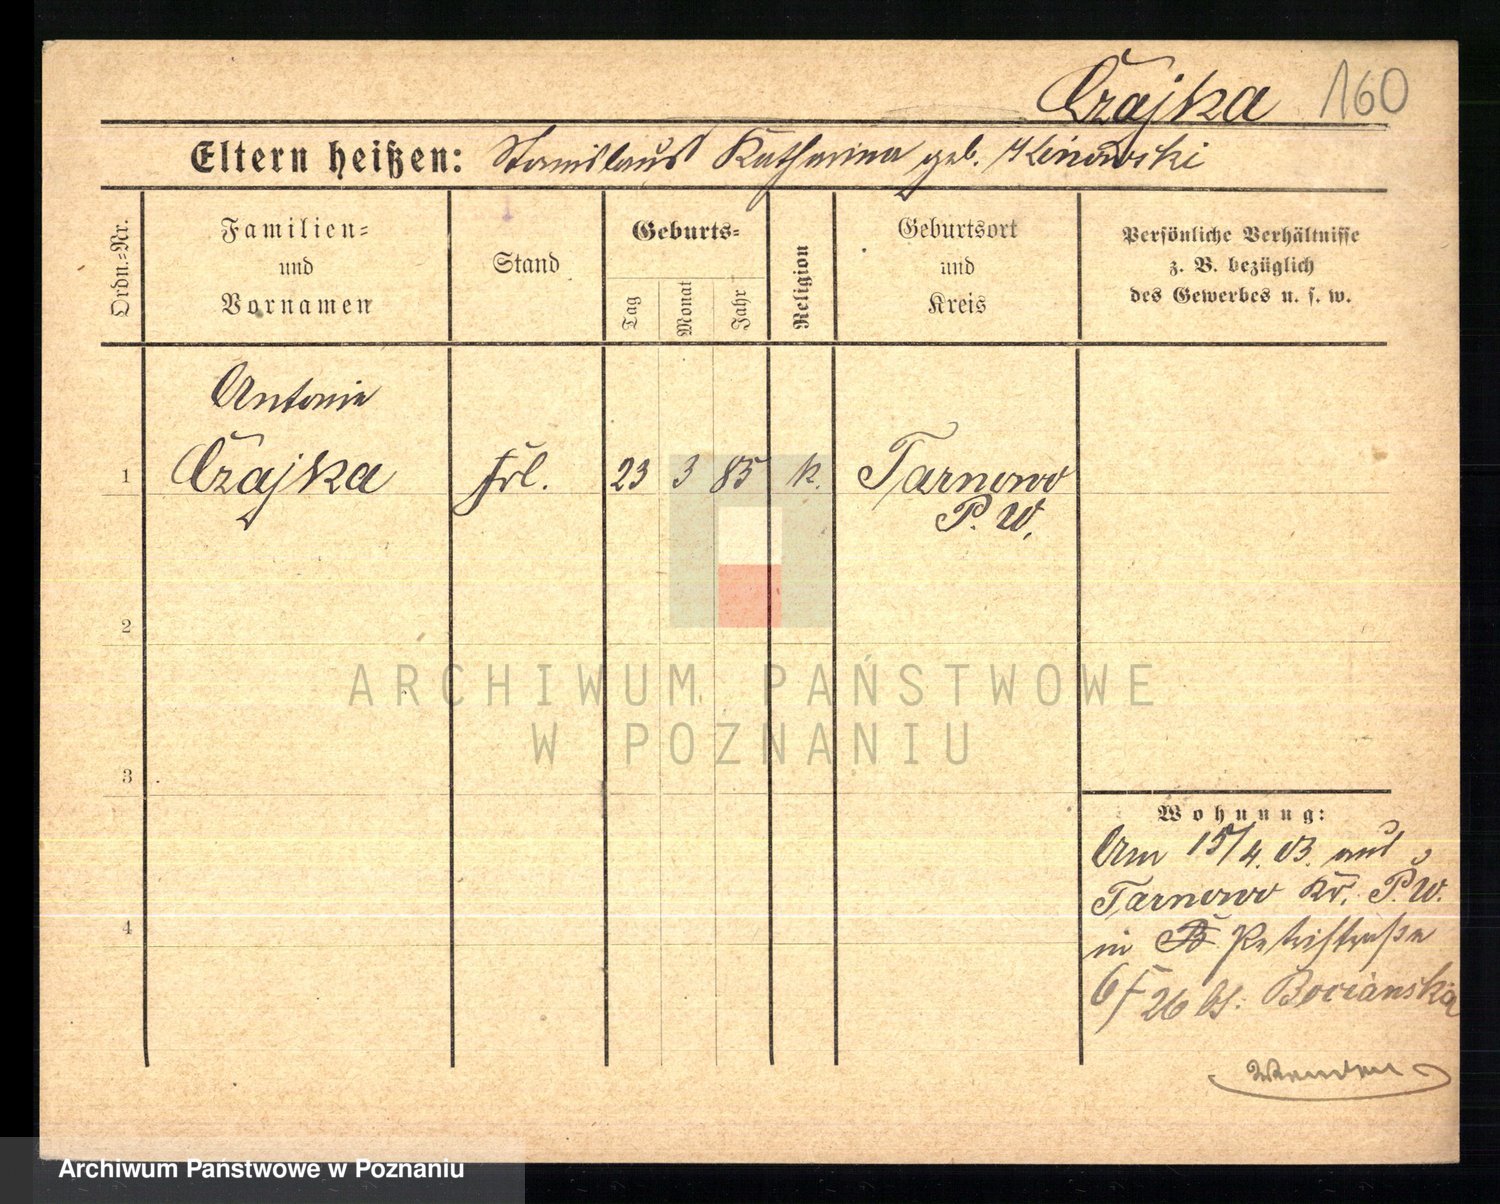 Czajka 160
Eltern heißen: Stanislaus Katharina geb. Klinowski
Ordn.-Nr.
Familien-
und
Vornamen
Stand
Geburts-
Tag
Monat
Jahr
Religion
Geburtsort
und
Kreis
Persönliche Verhältnisse
z. B. bezüglich
des Gewerbes u. s. w.
Antonie
1 Czajka Frl. 23 3 85 k. Tarnowo
P. W.
2
3
4
Wohnung:
Am 15/4. 03. aus
Tarnowo Kr. P. W.
in Petristraße
6 f 26 bs. Bocianska
Wenden
ARCHIWUM PAŃSTWOWE
W POZNANIU
Archiwum Państwowe w Poznaniu